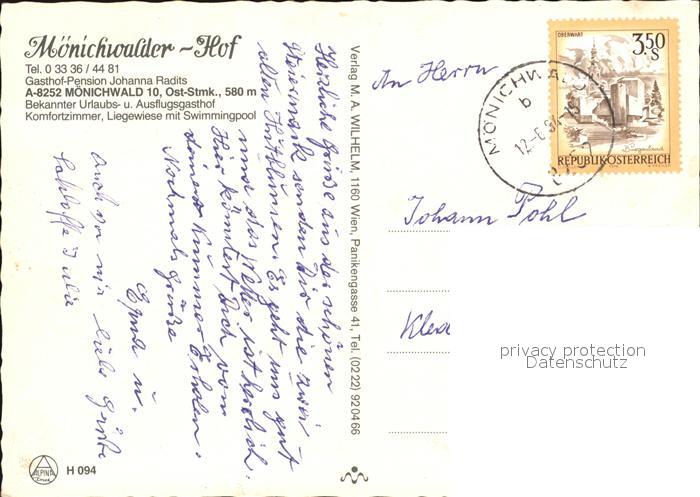 Mönichwalder-Hof
Tel. 0 33 36 / 44 81
Gasthof-Pension Johanna Radits
A-8252 MÖNICHWALD 10, Ost-Stmk., 580 m
Bekannter Urlaubs- u. Ausflugsgasthof
Komfortzimmer, Liegewiese mit Swimmingpool
Herzliche Grüße aus der schönen
Steiermark senden Dir die zwei
alten
Es geht uns gut
und das Wetter ist herrlich.
Hier könntest Dich vom
deinen Kummer Erholen.
Nochmals Grüße
Erna u.
Auch von mir liebe Grüße
Verlag M. A. WILHELM, 1160 Wien, Panikengasse 41, Tel. (0222) 920466
An Herrn
Johann Pohl
MÖNICHWALD
b
12.-6.84
OBERWART
3,50
S
Burgenland
REPUBLIK ÖSTERREICH
privacy protection
Datenschutz
ALPINA
H 094